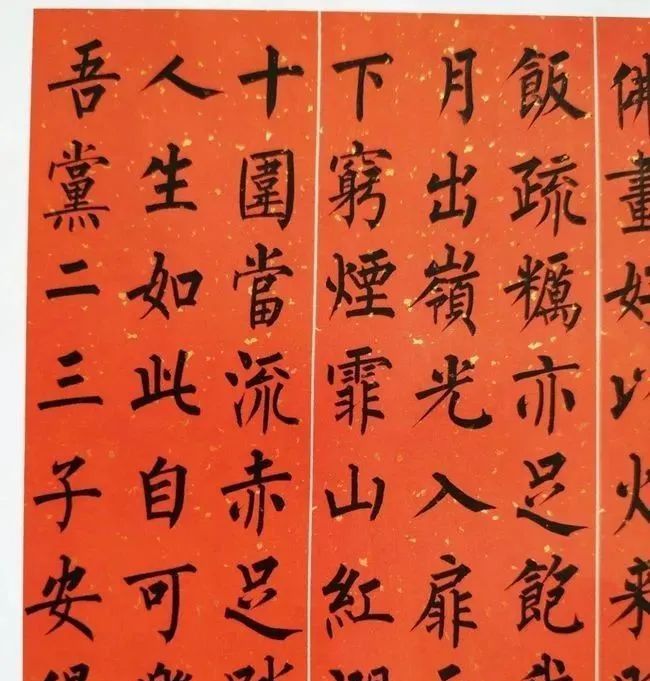 佛畫好以火来
飯疏糲亦足飽
月出嶺光入扉
下窮煙霏山紅
十圍當流赤足
人生如此自可
吾黨二三子安